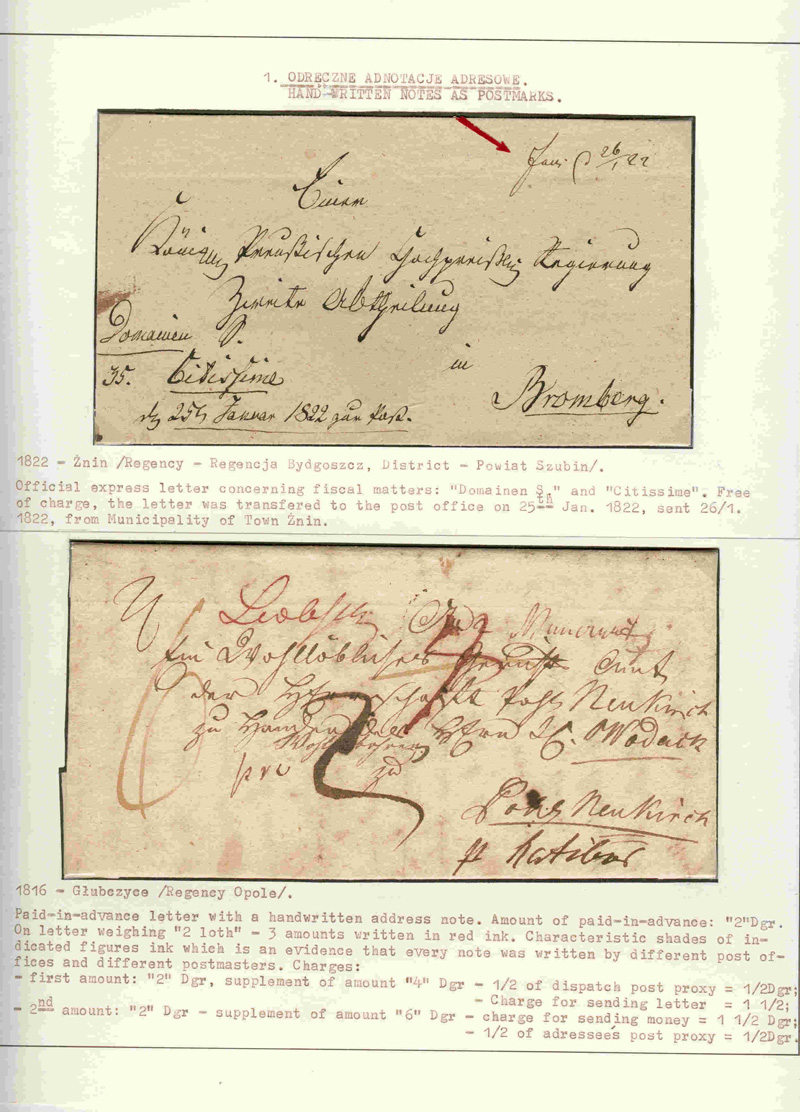 1. ODRĘCZNE ADNOTACJE ADRESOWE.
HAND WRITTEN NOTES AS POSTMARKS.
26/1 22
Einer
Königl Preußischen Hochpreißl Regierung
Zweite Abtheilung
Domainen S.
in
35. Citissime
Bromberg.
d 25t Januar 1822 zur Post.
1822 - Żnin /Regency - Regencja Bydgoszcz, District - Powiat Szubin/.
Official express letter concerning fiscal matters: "Domainen S." and "Citissime". Free
of charge, the letter was transfered to the post office on 25th Jan. 1822, sent 26/1.
1822, from Municipality of Town Żnin.
Leobsch
Ein Wohllöbliches Gericht Amt
der Herrschaft Pohl Neukirch
zu Handen des Herrn Wodack
zu
Pohl Neukirch
p Ratibor
1816 - Głubczyce /Regency Opole/.
Paid-in-advance letter with a handwritten address note. Amount of paid-in-advance: "2"Dgr.
On letter weighing "2 loth" - 3 amounts written in red ink. Characteristic shades of in-
dicated figures ink which is an evidence that every note was written by different post of-
fices and different postmasters. Charges:
- first amount: "2" Dgr, supplement of amount "4" Dgr - 1/2 of dispatch post proxy = 1/2Dgr;
- Charge for sending letter = 1 1/2;
- 2nd amount: "2" Dgr - supplement of amount "6" Dgr - charge for sending money = 1 1/2 Dgr;
- 1/2 of adressee's post proxy = 1/2Dgr.